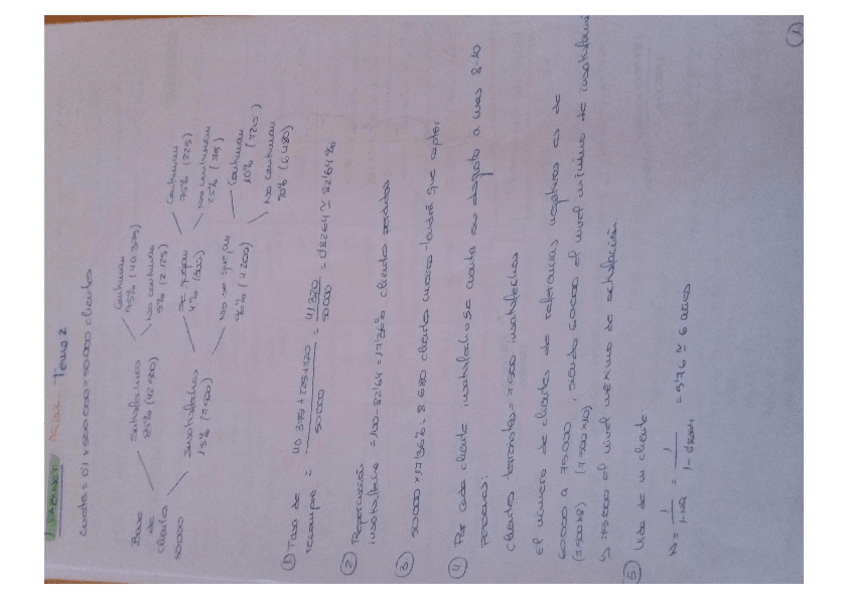 Tema 2
cuota = 0'1 x 500000 = 50000 clientes
Base de clientes 50000
Satisfechos 85% (42 500)
Continuan 95% (40 375)
No continuan 5% (2 125)
Insatisfechos 15% (7 500)
Se quejan 4% (300)
Continuan 75% (225)
No continuan 25% (75)
No se quejan 96% (7 200)
Continuan 10% (720)
No continuan 90% (6 480)
① Tasa de recompra = 40 375 + 225 + 720 / 50 000 = 41 320 / 50 000 = 0'8264 ≃ 82'64%
② Repercusión insatisfacc = 100 - 82'64 = 17'36% clientes perdidos
③ 50000 x 17'36% = 8 680 clientes nuevos tendrá que captar
④ Por cada cliente insatisfecho se cuenta su disgusto a unas 8-10
personas:
clientes = 7 500 insatisfechos
el número de clientes de referencias negativas es de
60000 a 75000, siendo 60000 el nivel mínimo de insatisfacc
(7500x8) (7 500 x10)
y 75000 el nivel máximo de satisfacción.
⑤ Vida de un cliente
N = 1 / 1-TR = 1 / 1-0'8264 = 5'76 ≃ 6 años